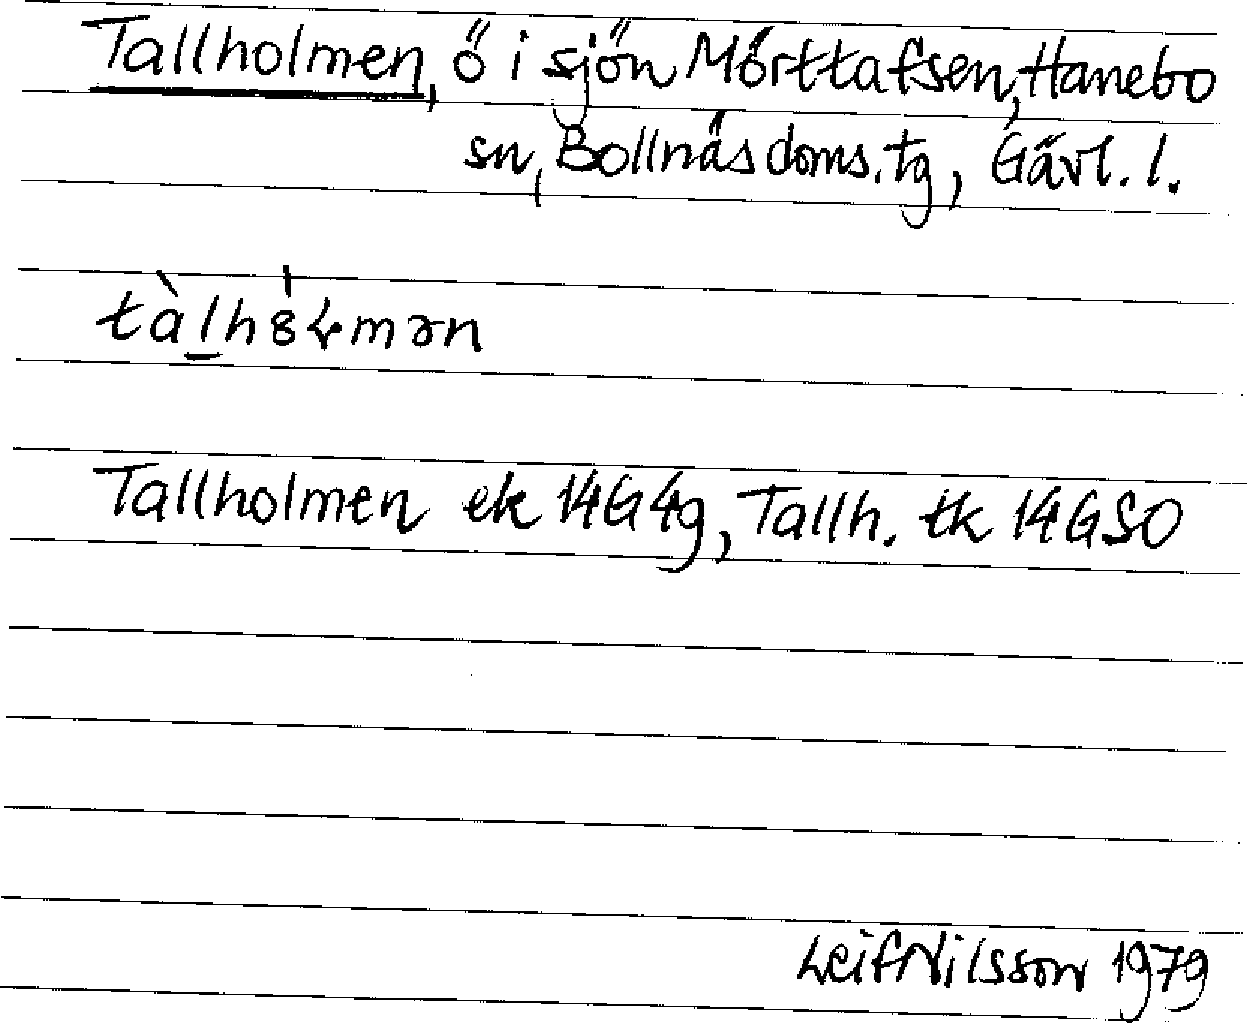 Tallholmen, ö i sjön Mörttafsen, Hanebo
sn, Bollnäs doms.tg, Gävl. l.
tàlhȣ̀ɬmən
Tallholmen ek 14G4g, Tallh. tk 14GSO
Leif Nilsson 1979